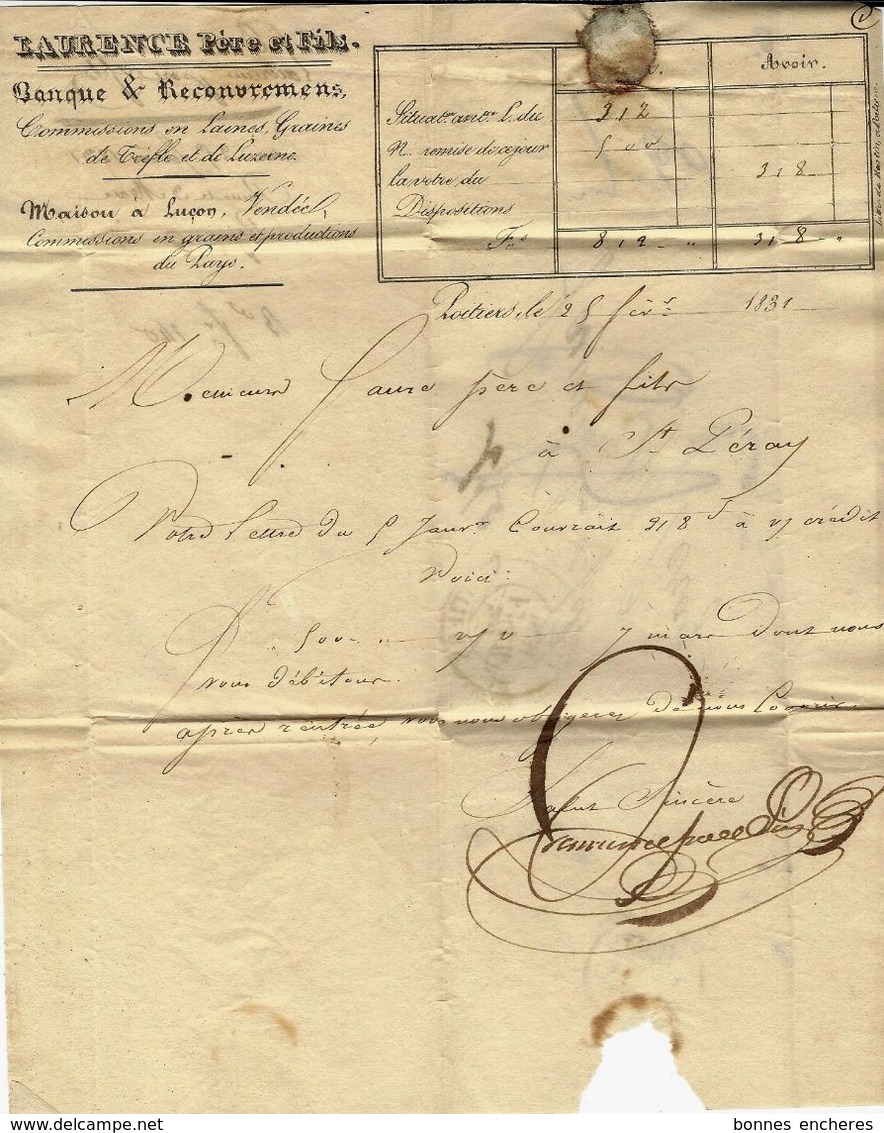 LAURENCE Père et Fils.
Banque & Recouvremens,
Commissions en Laines, Graines
de Trèfle et de Luzerne.
Maison à Luçon, Vendée,
Commissions en grains et productions
du Pays.
Avoir.
Situaton. antre. L. du 312
N. remise de ce jour 500
la vôtre du 318
Dispositions
Fs. 812 " 318 "
Poitiers, le 25 févr. 1831
Messieurs Faure père et fils
à St Péray
Votre lettre du 5 Janvr. Couvrait 318 f à v/ crédit
Voici:
F 500 " s/ 7 mars dont nous
vous débitons.
après rentrée, vous nous obligerez de nous Couvrir.
Salut Sincère
Laurence père & fils
bonnes encheres